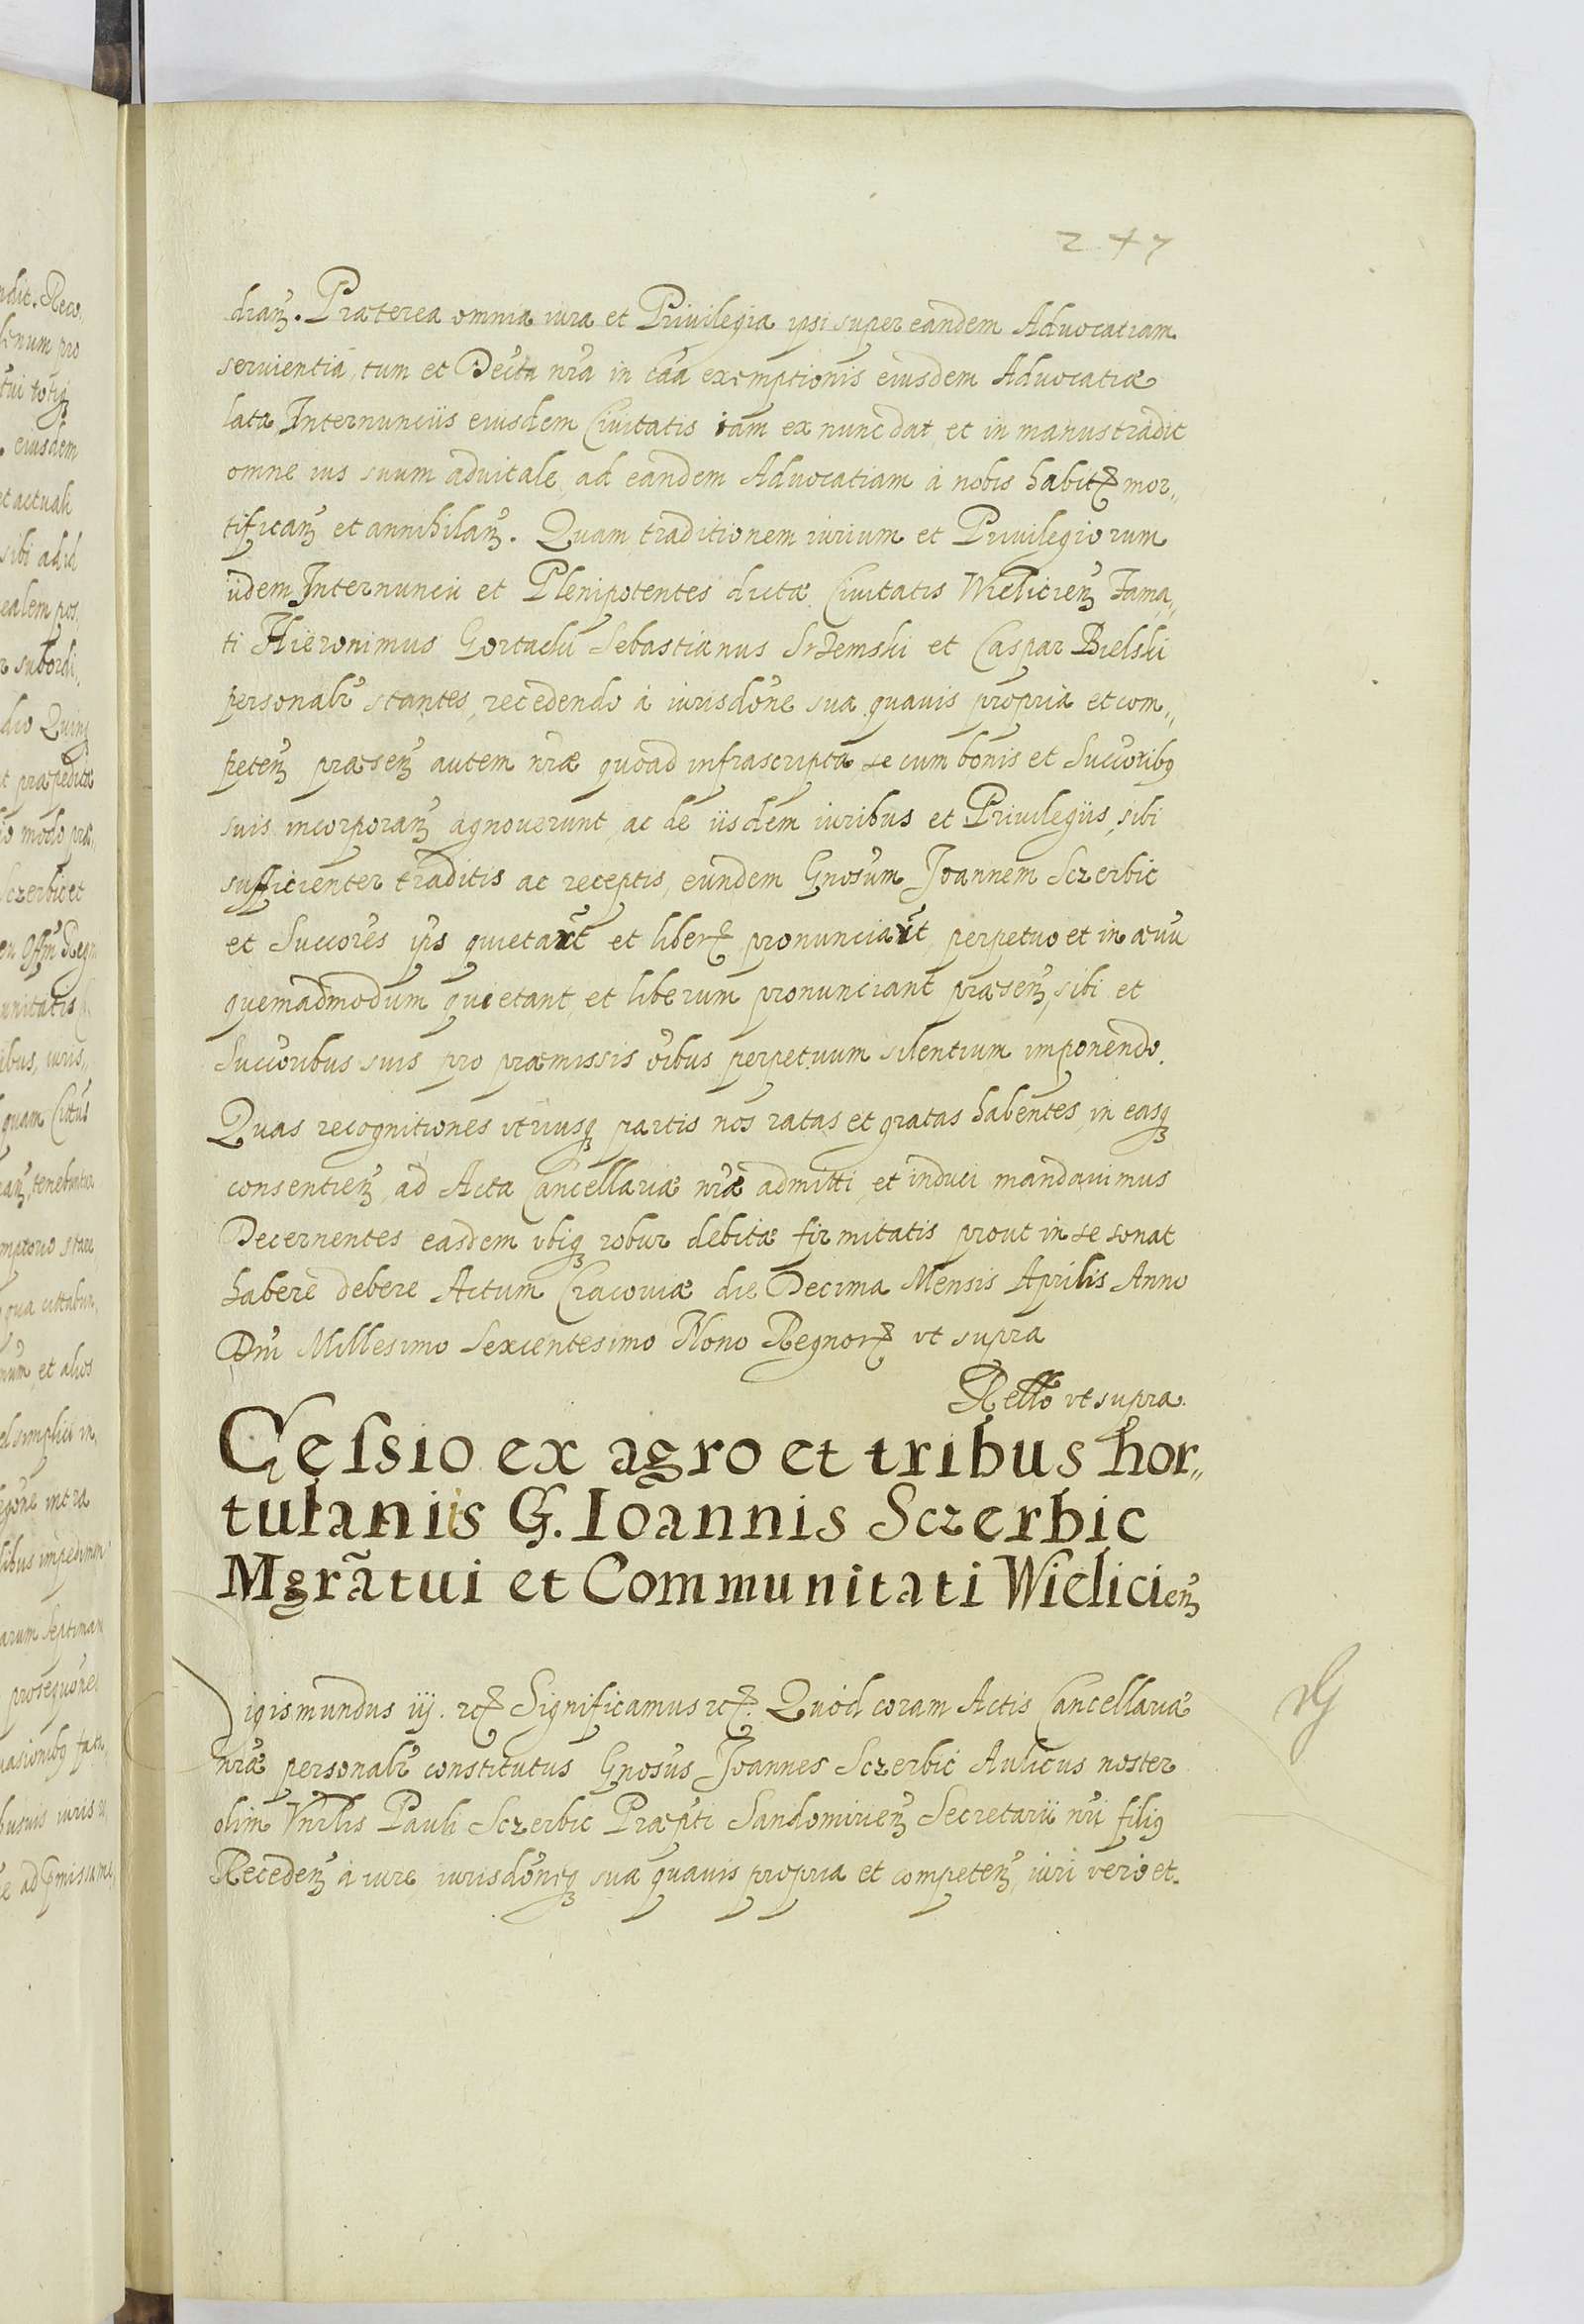 247
dian̄. Præterea omnia iura et Priuilegia ipsi super eandem Aduocatiam
seruientia, tum et Decta nr̄a in cāa exemptionis eiusdem Aduocatiæ
lata Internunciis eiusdem Ciuitatis iam ex nunc dat, et in manus tradit
omne ius suum aduitale, ad eandem Aduocatiam à nobis habitꝝ mor„
tifican̄ et annihilan̄. Quam traditionem iurium et Priuilegiorum
iidem Internuncii et Plenipotentes dictæ Ciuitatis Wielicien̄ Fama„
ti Hieronimus Gortuchi Sebastianus Srzemski et Caspar Bielski
personalr̄ stantes, recedendo à iurisdōne sua quauis propria et com„
peten̄ præsen̄ autem nr̄æ quoad infrascripta se cum bonis et Succōribꝯ
suis incorporan̄ agnouerunt, ac de iisdem iuribus et Priuilegiis, sibi
sufficienter traditis ac receptis, eundem Gnōsum Joannem Sczerbic
et Succōres ip̄s quietar̄t et liberꝝ pronunciar̄t, perpetuo et in æuū
quemadmodum quietant, et liberum pronunciant præsen̄, sibi et
Succōribus suis pro præmissis ōibus perpetuum silentium imponendo.
Quas recognitiones vtriusqꝫ partis nos ratas et gratas habentes, in easqꝫ
consentien̄, ad Acta Cancellariæ nr̄æ admitti, et induci mandauimus
Decernentes easdem vbiqꝫ robur debitæ firmitatis prout in se sonat
habere debere Actum Cracouiæ die Decima Mensis Aprilis Anno
Dn̄i Millesimo Sexcentesimo Nono Regnorꝝ vt supra
Rel̄lō vt supra.
Cessio ex agro et tribus hor„
tulaniis G. Ioannis Sczerbic
Mgrãtui et Communitati Wielicien̄
Sigismundus iij. ꝛcꝝ Significamus ꝛcꝝ. Quòd coram Actis Cancellariæ
nr̄æ personalr̄ constitutus Gnōsus Joannes Sczerbic Aulicus noster
olim Vnr̄lis Pauli Sczerbic Præpt̄i Sandomirien̄ Secretarii nr̄i filiꝯ
Receden̄ à iure iurisdōneqꝫ sua quauis propria et competen̄, iuri verò et